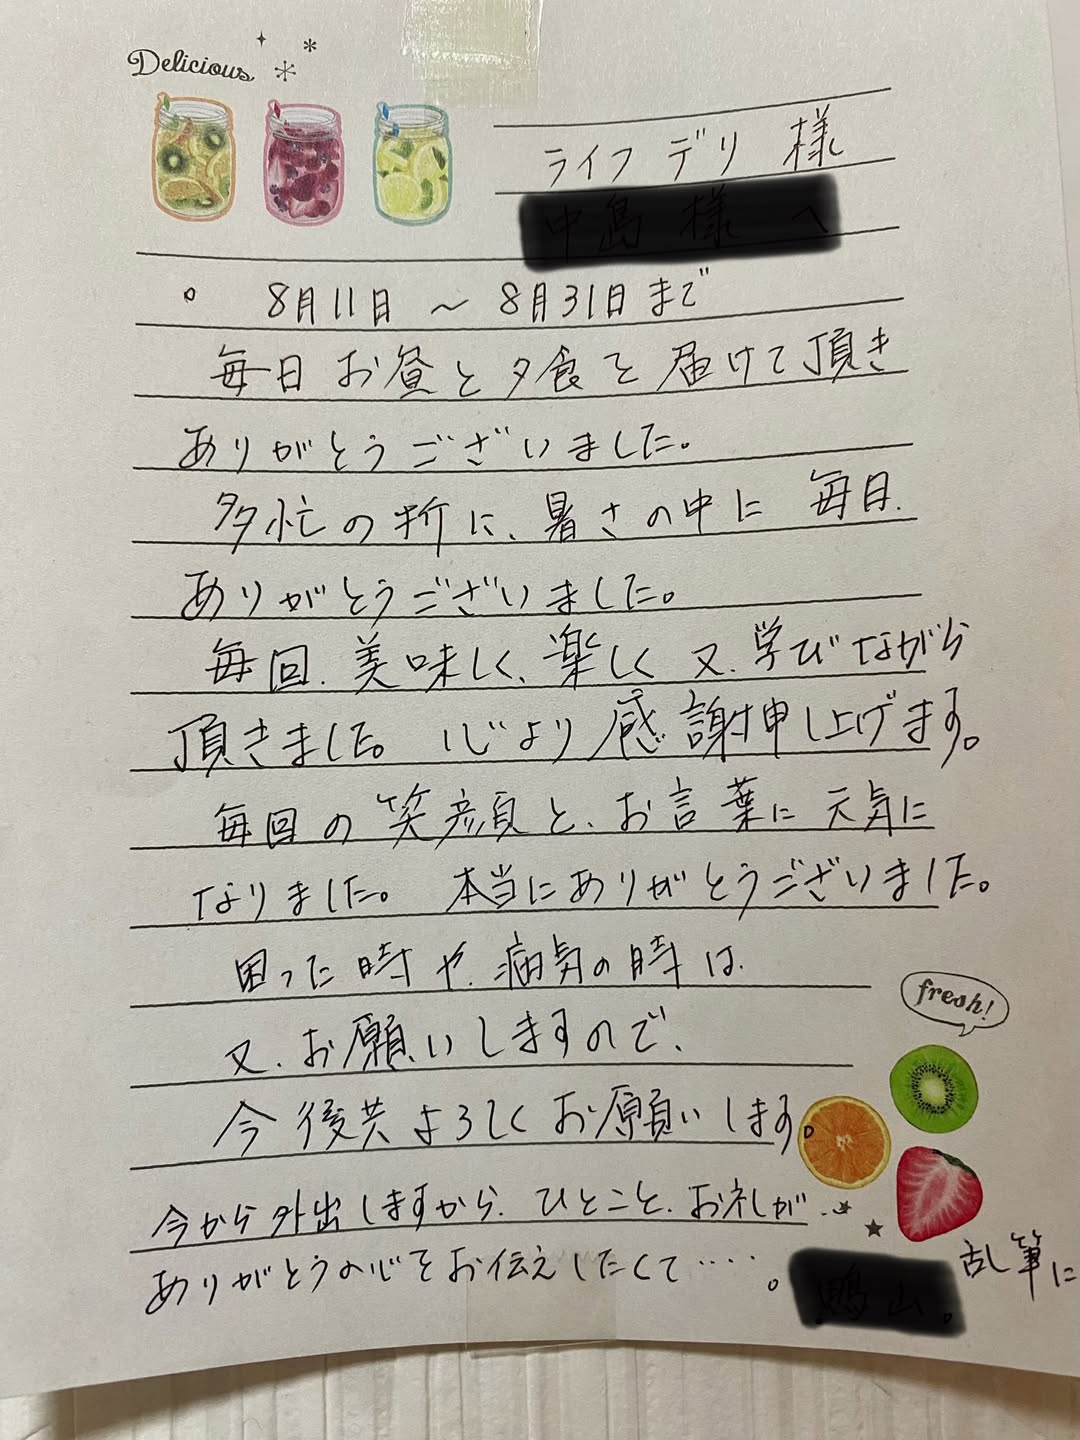 Delicious
ライフ デリ 様
8月11日 〜 8月31日まで
毎日 お昼と夕食を届けて頂き
ありがとうございました。
多忙の折に、暑さの中に 毎日、
ありがとうございました。
毎回、美味しく、楽しく 又、学びながら
頂きました。心より感謝申し上げます。
毎回の笑顔と、お言葉に元気に
なりました。 本当にありがとうございました。
困った時や、病気の時は、
又、お願いしますので、
今後共よろしくお願いします。
fresh!
今から外出しますから、ひとこと、お礼が
ありがとうの心をお伝えしたくて‥‥。
乱筆に